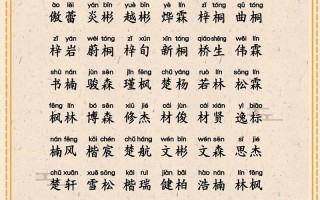 ào lěi yán bīn yuè bīn yè lín zǐ tóng qū tóng
傲蕾 炎彬 越彬 烨霖 梓桐 曲桐
zǐ yán wèi tóng zǐ xún xīn tóng qiáo shēng wěi lín
梓岩 蔚桐 梓旬 新桐 桥生 伟霖
shū nán jùn sēn jǐn fēng chǔ yáng ruò lín sōng lín
书楠 骏森 瑾枫 楚杨 若林 松霖
fēng lín bó sēn xiū jié cái jùn cái xián yì biāo
枫林 博森 修杰 材俊 材贤 逸标
nán fēng kǎi chén chǔ háng wén bīn wén sēn sī jié
楠风 楷宸 楚航 文彬 文森 思杰
chǔ xuān xuě sōng kǎi ruì jiàn bó hào nán lín fēng
楚轩 雪松 楷瑞 健柏 浩楠 林枫